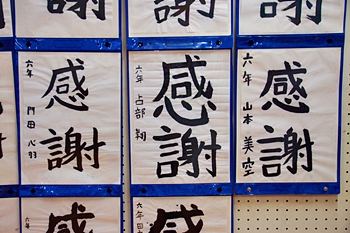 感謝
六年 門田 心羽
感謝
六年 占部 翔
感謝
六年 山本 美空
六年
感
六年
感